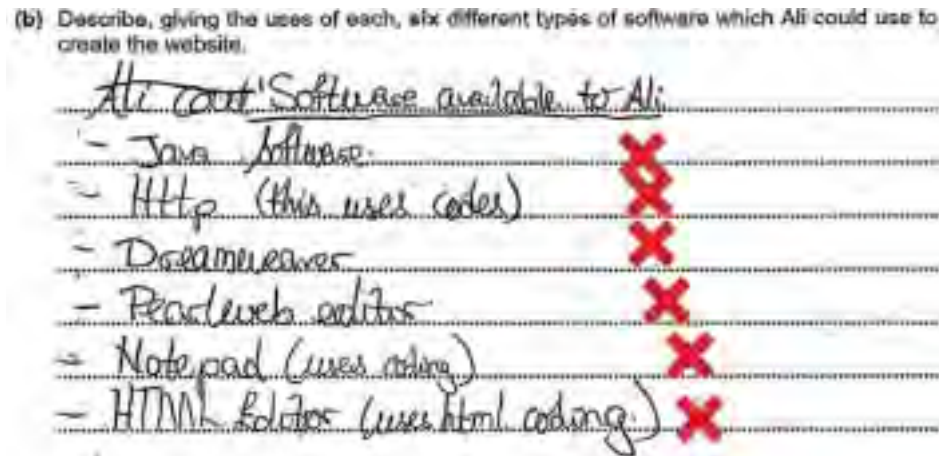 (b) Describe, giving the uses of each, six different types of software which Ali could use to
create the website.
Ali 'Software available to Ali
- Java Software.
- Http (this uses codes)
- Dreamweaver
- Pearlweb editor
- Notepad (uses coding)
- HTML Editor (uses html coding.)